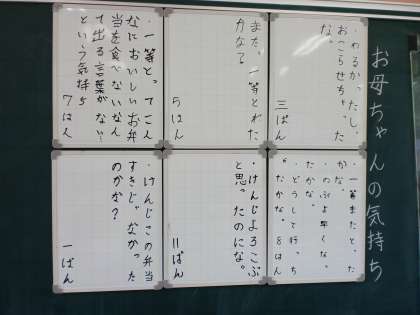 お母ちゃんの気持ち
・わるかったし、
おこらせちゃった
な。
三ぱん
また、一等とれた
かな?
5はん
・一等とってこん
なにおいしいお弁
当を食べないなん
て出る言葉がない
という気持ち
7はん
・一等またと、た
かな。
たかな。
・どうして行っち
ゃったかな。8はん
・けんじよろこぶ
と思ったのにな。
11ぱん
・けんじこの弁当
すきじゃなかった
のかな?
一ぱん